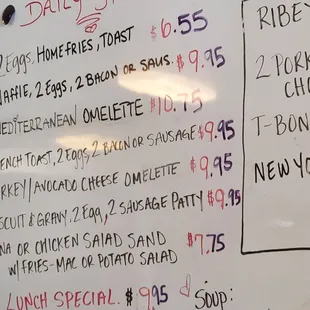 DAILY
2 Eggs, HOMEFRIES, TOAST $6.55
WAFFLE, 2 Eggs, 2 BACON OR SAUS. $9.95
MEDITERRANEAN OMELETTE $10.75
FRENCH TOAST, 2 Eggs, 2 BACON OR SAUSAGE $9.95
TURKEY/AVOCADO CHEESE OMELETTE $9.95
BISCUIT & GRAVY, 2 Egg, 2 SAUSAGE PATTY $9.95
TUNA OR CHICKEN SALAD SAND
W/FRIES-MAC OR POTATO SALAD $7.75
LUNCH SPECIAL. $9.95
SOUP:
RIBEY
2 PORK
CHO
T-BON
NEW YO